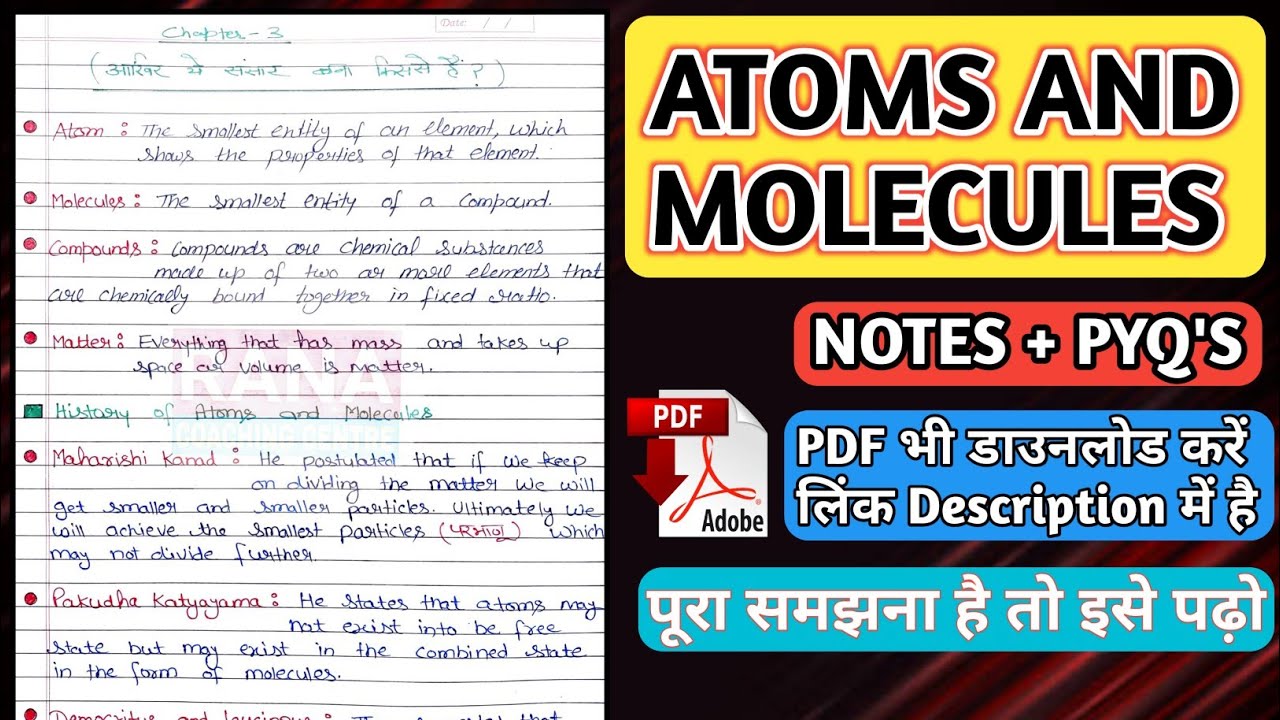 Date: / /
Chapter-3
(आखिर ये संसार बना किससे है?)
Atom : The smallest entity of an element, which
shows the properties of that element.
Molecules : The smallest entity of a compound.
Compounds : Compounds are chemical substances
made up of two or more elements that
are chemically bound together in fixed ratio.
Matter : Everything that has mass and takes up
space or volume is matter.
RANA
History of Atoms and Molecules
COACHING CENTRE
Maharishi Kanad : He postulated that if we keep
on dividing the matter we will
get smaller and smaller particles. Ultimately we
will achieve the smallest particles (परमाणु) which
may not divide further.
Pakudha Katyayama : He states that atoms may
not exist into be free
state but may exist in the combined state
in the form of molecules.
ATOMS AND
MOLECULES
NOTES + PYQ'S
PDF
Adobe
PDF भी डाउनलोड करें
लिंक Description में है
पूरा समझना है तो इसे पढ़ो